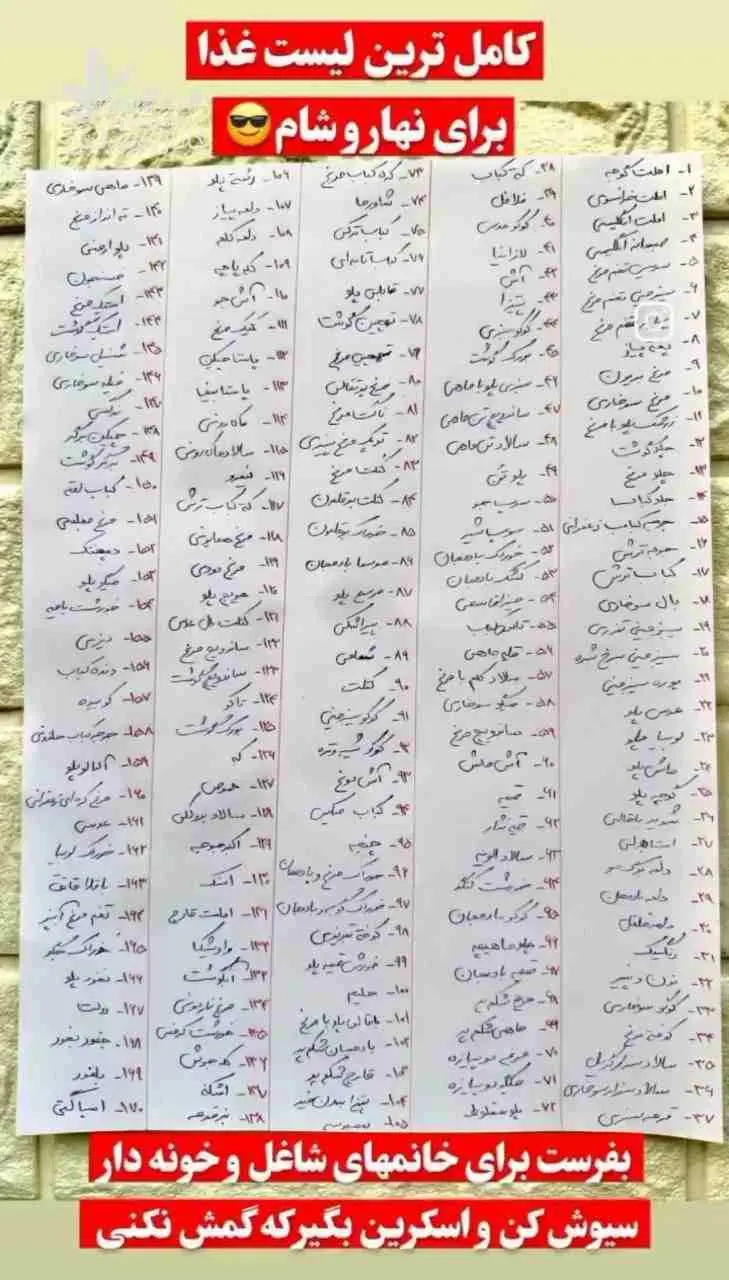 کامل ترین لیست غذا
برای نهار و شام😎
۱- املت گوجه
۲- املت فرانسوی
۳- املت انگلیسی
۴- صبحانه انگلیسی
۵- سوسیس تخم مرغ
۶- سیب زمینی تخم مرغ
۷- تخم مرغ
۸-
۹- مرغ بریون
۱۰- مرغ سوخاری
۱۱- زرشک پلو با مرغ
۱۲- چلو گوشت
۱۳- چلو مرغ
۱۴- چلو کباب
۱۵- جوجه کباب زعفرانی
۱۶- جوجه ترش
۱۷- کباب ترش
۱۸- بال سوخاری
۱۹- سیب زمینی تنوری
۲۰- سیب زمینی سرخ شده
۲۱- پوره سیب زمینی
۲۲- عدس پلو
۲۳- لوبیا پلو
۲۴- ماش پلو
۲۵- گوجه پلو
۲۶- شوید باقالی
۲۷- استامبولی
۲۸- دلمه برگ مو
۲۹- دلمه بادمجان
۳۰- دلمه فلفل
۳۱-
۳۲- نون و پنیر
۳۳- کوکو سوخاری
۳۴- کوفته مرغ
۳۵- سالاد سزار گریل
۳۶- سالاد سزار سوخاری
۳۷- قرمه سبزی
۳۸- کباب
۳۹- فلافل
۴۰- کوکو عدس
۴۱- لازانیا
۴۲- آش
۴۳- پیتزا
۴۴- کوکو سبزی
۴۵- گوشت
۴۶- سبزی پلو با ماهی
۴۷- ساندویچ تن ماهی
۴۸- سالاد تن ماهی
۴۹- پلو تن
۵۰- سوپ جو
۵۱- سوپ شیر
۵۲- خوراک بادمجان
۵۳- کشک بادمجان
۵۴- میرزاقاسمی
۵۵-
۵۶- قلیه ماهی
۵۷- سالاد کلم با مرغ
۵۸- میگو سوخاری
۵۹- ساندویچ مرغ
۶۰- آش ماش
۶۱- قیمه
۶۲- قیمه نثار
۶۳- سالاد الویه
۶۴- خورشت کنگر
۶۵- کوکو بادمجان
۶۶- چلو ماهیچه
۶۷- قیمه بادمجان
۶۸- مرغ شکم پر
۶۹- ماهی شکم پر
۷۰- مرغ دوپیازه
۷۱- میگو دوپیازه
۷۲- پلو مخلوط
۷۳- کره کباب مرغ
۷۴- شاورما
۷۵- کباب ترکی
۷۶- کباب تابه‌ای
۷۷- قابلی پلو
۷۸- ته‌چین گوشت
۷۹- ته‌چین مرغ
۸۰- مرغ پرتقالی
۸۱- ناگت مرغ
۸۲- مرغ پنیری
۸۳- کتلت مرغ
۸۴- کتلت بوقلمون
۸۵- خوراک بوقلمون
۸۶- موسما بادمجان
۸۷- مرصع پلو
۸۸- پیراشکی
۸۹- شامی
۹۰- کتلت
۹۱- کوکو سیب زمینی
۹۲- کوکو شیر و تره
۹۳- آش دوغ
۹۴- کباب
۹۵- چنجه
۹۶- خوراک مرغ و بادمجان
۹۷- خوراک گوشت و بادمجان
۹۸- کوفته تبریزی
۹۹- خورش قیمه پلو
۱۰۰- حلیم
۱۰۱- باقالی پلو با مرغ
۱۰۲- بادمجان شکم پر
۱۰۳- قارچ شکم پر
۱۰۴- پیتزا بدون خمیر
۱۰۵-
۱۰۶- رشته پلو
۱۰۷- دلمه پیاز
۱۰۸- دلمه کلم
۱۰۹- کله پاچه
۱۱۰- آش جو
۱۱۱- کیک مرغ
۱۱۲- پاستا چیکن
۱۱۳- پاستا بیف
۱۱۴-
۱۱۵- سالاد ماکارونی
۱۱۶-
۱۱۷- کباب ترش
۱۱۸-
۱۱۹-
۱۲۰- هویج پلو
۱۲۱- کتلت
۱۲۲- ساندویچ مرغ
۱۲۳- ساندویچ گوشت
۱۲۴- تاکو
۱۲۵- گوشت
۱۲۶-
۱۲۷-
۱۲۸- سالاد بروکلی
۱۲۹- اکبر جوجه
۱۳۰- اسنک
۱۳۱- املت قارچ
۱۳۲- واویشکا
۱۳۳- آبگوشت
۱۳۴- مرغ ناردونی
۱۳۵- خورشت کرفس
۱۳۶- کله جوش
۱۳۷- اشکنه
۱۳۸- نیز قورمه
۱۳۹- ماهی سوخاری
۱۴۰- ته انداز مرغ
۱۴۱- دلو ارمنی
۱۴۲-
۱۴۳- استیک مرغ
۱۴۴- استیک گوشت
۱۴۵- شنیسل سوخاری
۱۴۶- فیله سوخاری
۱۴۷-
۱۴۸- چیکن برگر
۱۴۹- برگر گوشت
۱۵۰- کباب لقمه
۱۵۱- مرغ
۱۵۲-
۱۵۳- میگو پلو
۱۵۴- خورشت بامیه
۱۵۵- دیزی
۱۵۶- دنده کباب
۱۵۷- کوبیده
۱۵۸- جوجه کباب
۱۵۹- آلبالو پلو
۱۶۰- مرغ کره‌ای زعفرانی
۱۶۱- عدسی
۱۶۲- خوراک لوبیا
۱۶۳- باقلا قاتق
۱۶۴- تخم مرغ آبپز
۱۶۵- خوراک میگو
۱۶۶- نخود پلو
۱۶۷- دولما
۱۶۸-
۱۶۹- بلغور
۱۷۰- اسپاگتی
بفرست برای خانمهای شاغل و خونه دار
سیوش کن و اسکرین بگیر که گمش نکنی